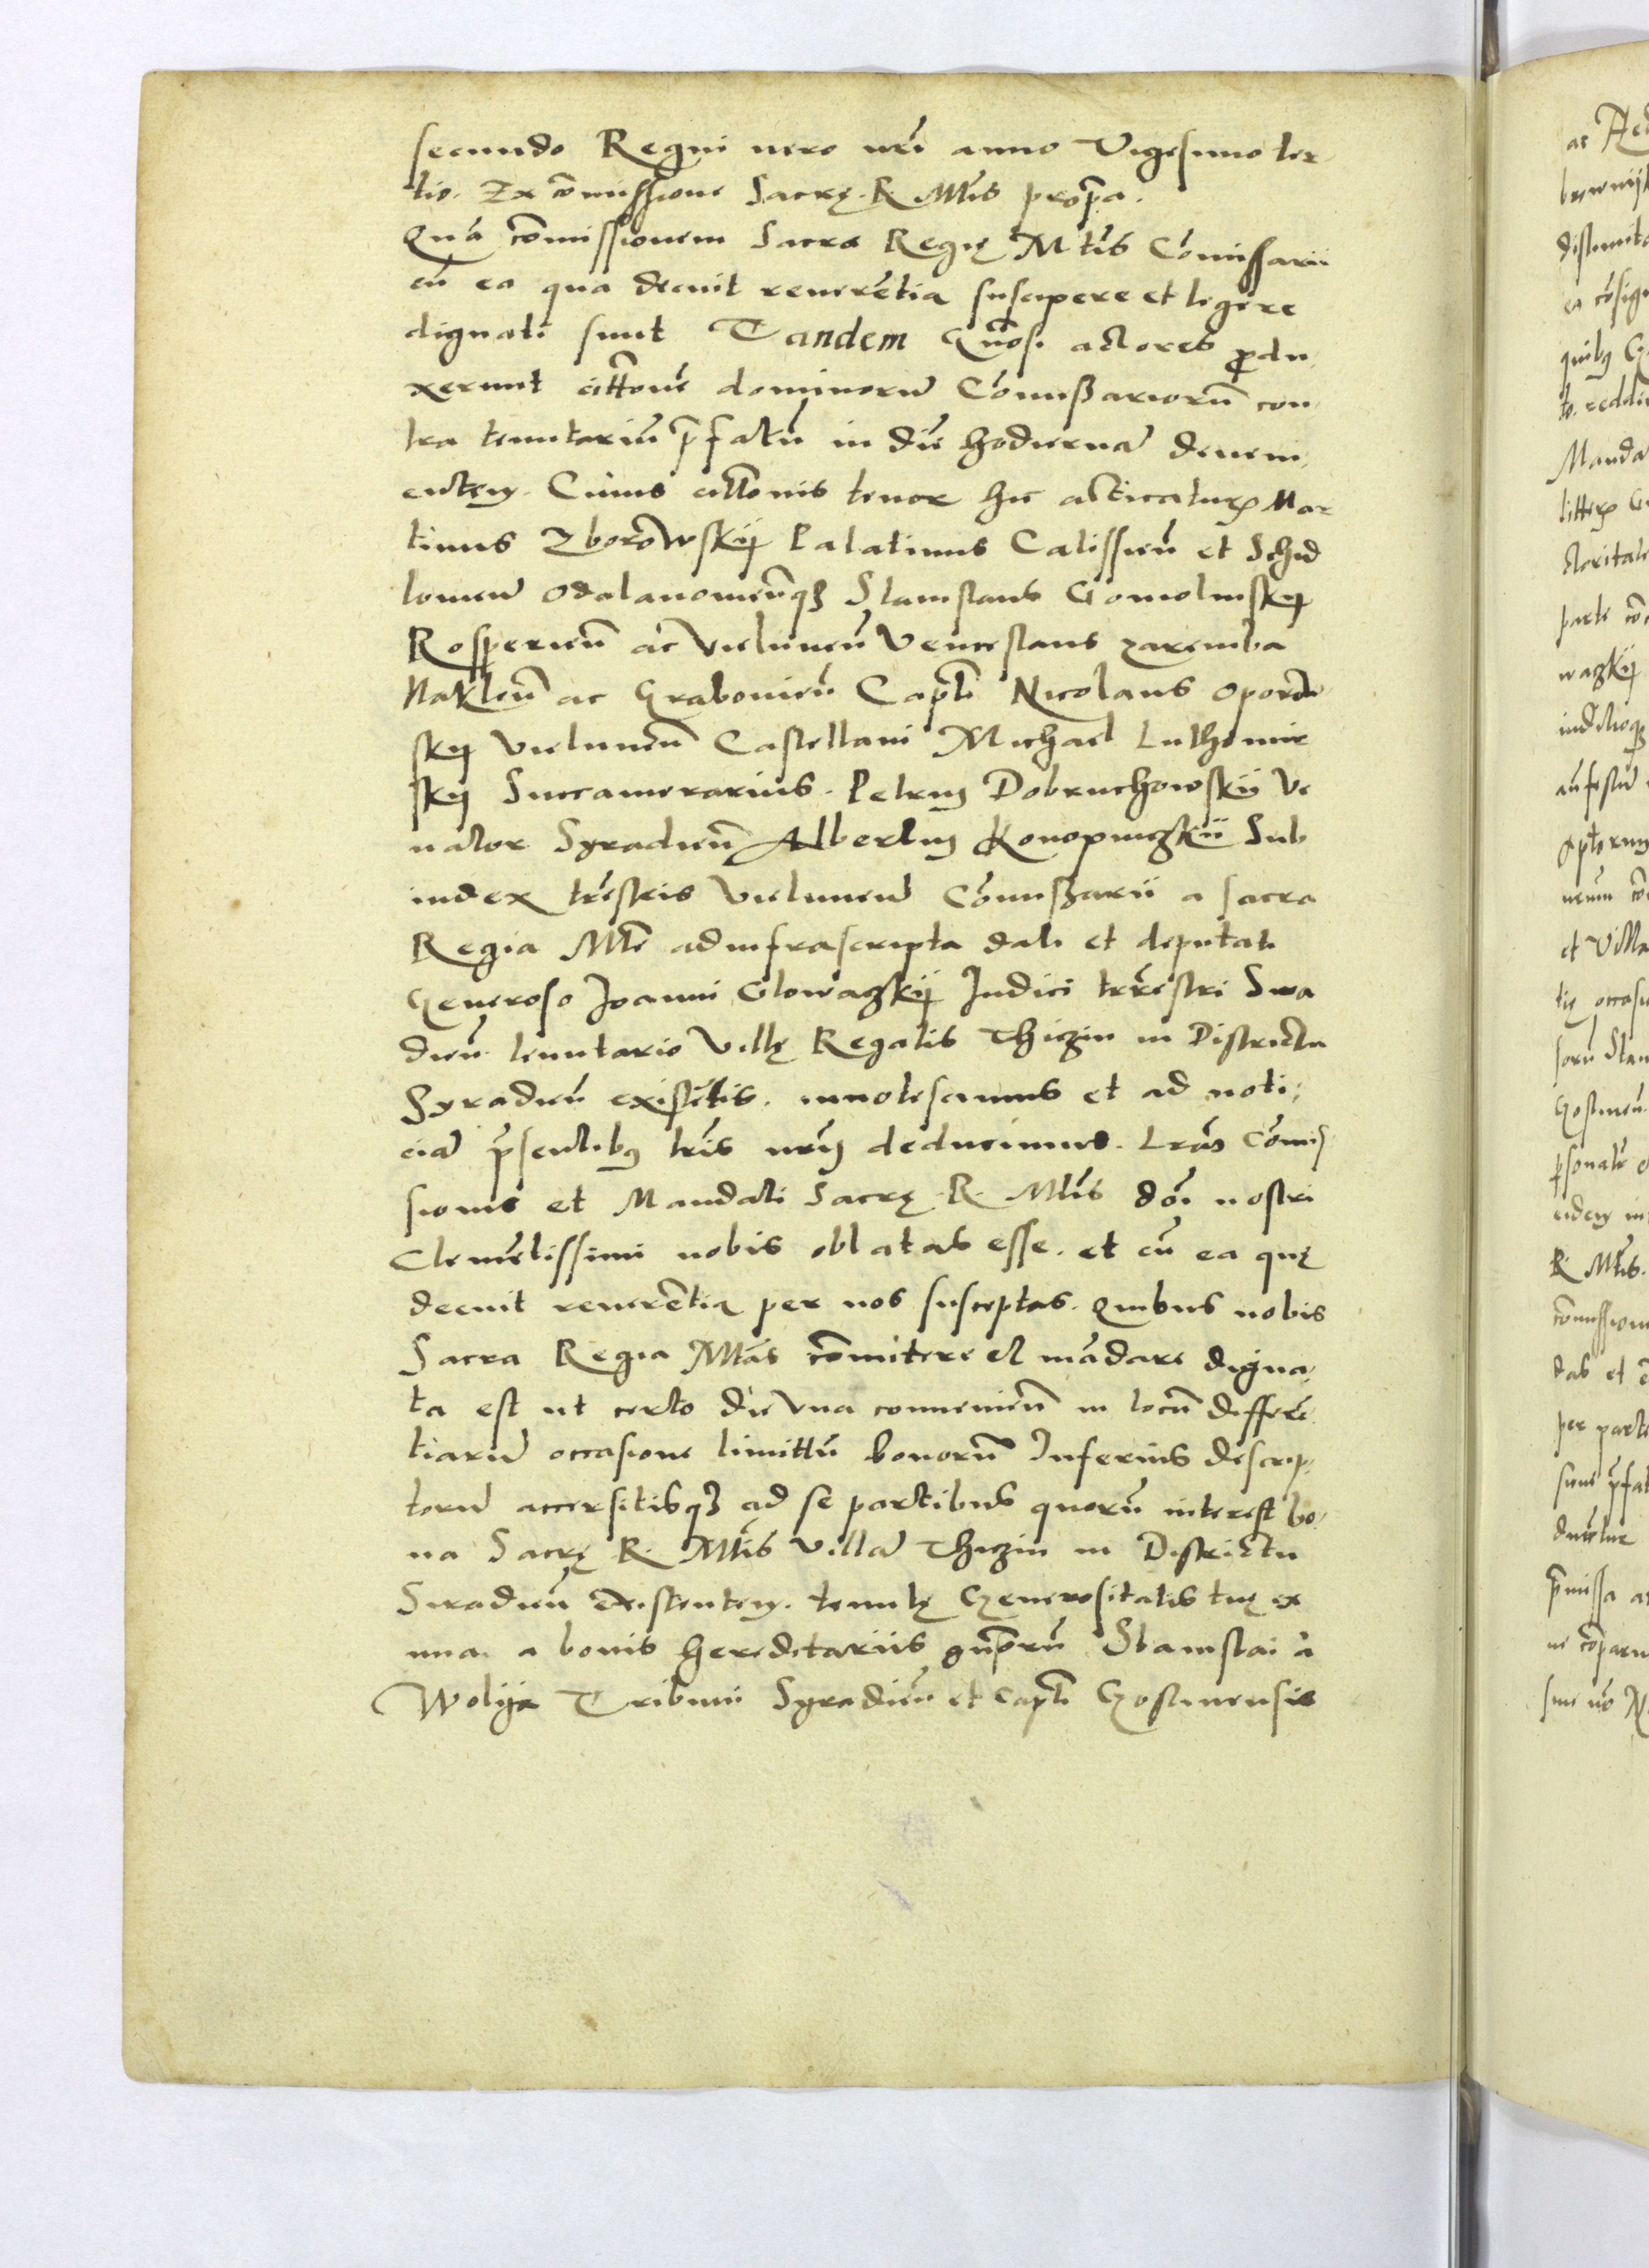 secundo Regni vero nrĩ anno Vigesimo ter
tio. Ex cõmissione Sacrę R Mtis propa.
Quã cõmissionem Sacrę Regię Mtis Cõmissarii
cũ ea qua decuit reverẽtia suscipere et legere
dignati sunt Tandem Gñosi actores produ
xerunt cittõne dominorũ Cõmissariorũ con
tra tenutariũ prfatũ in diẽ hodiernã deveni
entem. Cuius cittonis tenor hic acticatur Mar
tinus Zborowskij Palatinus Calissieñ et Schid
lovieñ Odalanovieñqz Stanislaus Gomolinskij
Rosperieñ ac Vielunieñ Venceslaus zaremba
Nakleñ ac Grabovieñ Capti Nicolaus Oporow
skij Vielunieñ Castellani Michael Luthomir
skij Succamerarius. Petrus Dobruchowskij Ve
nator Syradieñ Albertus Konopniczkii Sub
iudex trẽstris Vielunieñ Cõmissarii a sacra
Regia Mte ad infrascripta dati et deputati
Generoso Joanni Glowaczkij Judici terrestri Sira
dieñ tenutario Villę Regalis Thiczin in Districtu
Syradieñ existẽtis. innotescimus et ad noti
ciã prsentibus lris nris deducimus. Lras Cõmis
sionis et Mandati Sacrę R. Mtis dõi nostri
Clemẽtissimi nobis oblatas esse. et cũ ea quę
decuit reverẽtia per nos susceptas. Quibus nobis
Sacra Regia Mtas cõmitere et mãdare digna
ta est ut certo die Vna convenieñ in locũ differẽ
tiarũ occasione limittũ bonorũ Inferius descrip
torũ accersitisqz ad se partibus quorũ interest bo
na Sacrę R. Mtis Villã Thiczin in Districtu
Siradieñ existentem. tenutę Generositatis tuę ex
una a bonis hereditariis gñorũ Stanislai a
Wolija Tribuni Syradieñ et Capti Gostinensis